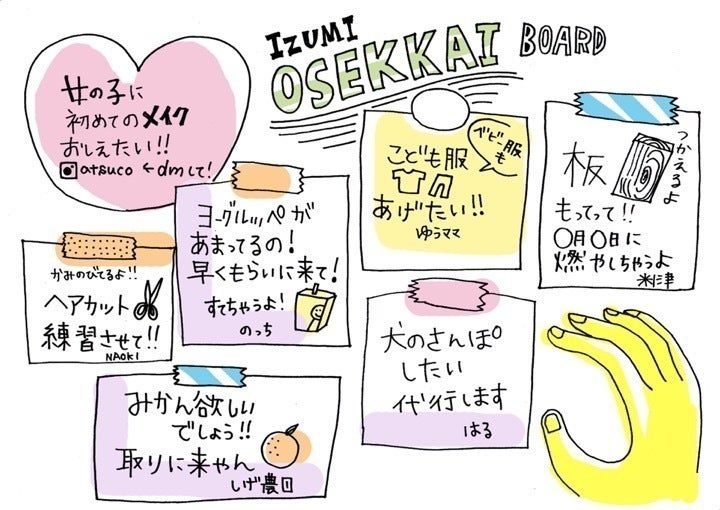 IZUMI
OSEKKAI BOARD
女の子に
初めてのメイク
おしえたい!!
atsuco ←dmして!
ヨーグルッペが
あまってるの!
早くもらいに来て!
すてちゃうよ!
のっち
ベビー服
も
こども服
あげたい!!
ゆうママ
つかえるよ
板
もってって!!
〇月〇日に
燃やしちゃうよ
米津
かみのびてるよ!!
ヘアカット
練習させて!!
NAOKI
犬のさんぽ
したい
代行します
はる
みかん欲しい
でしょう!!
取りに来やん
しげ農園